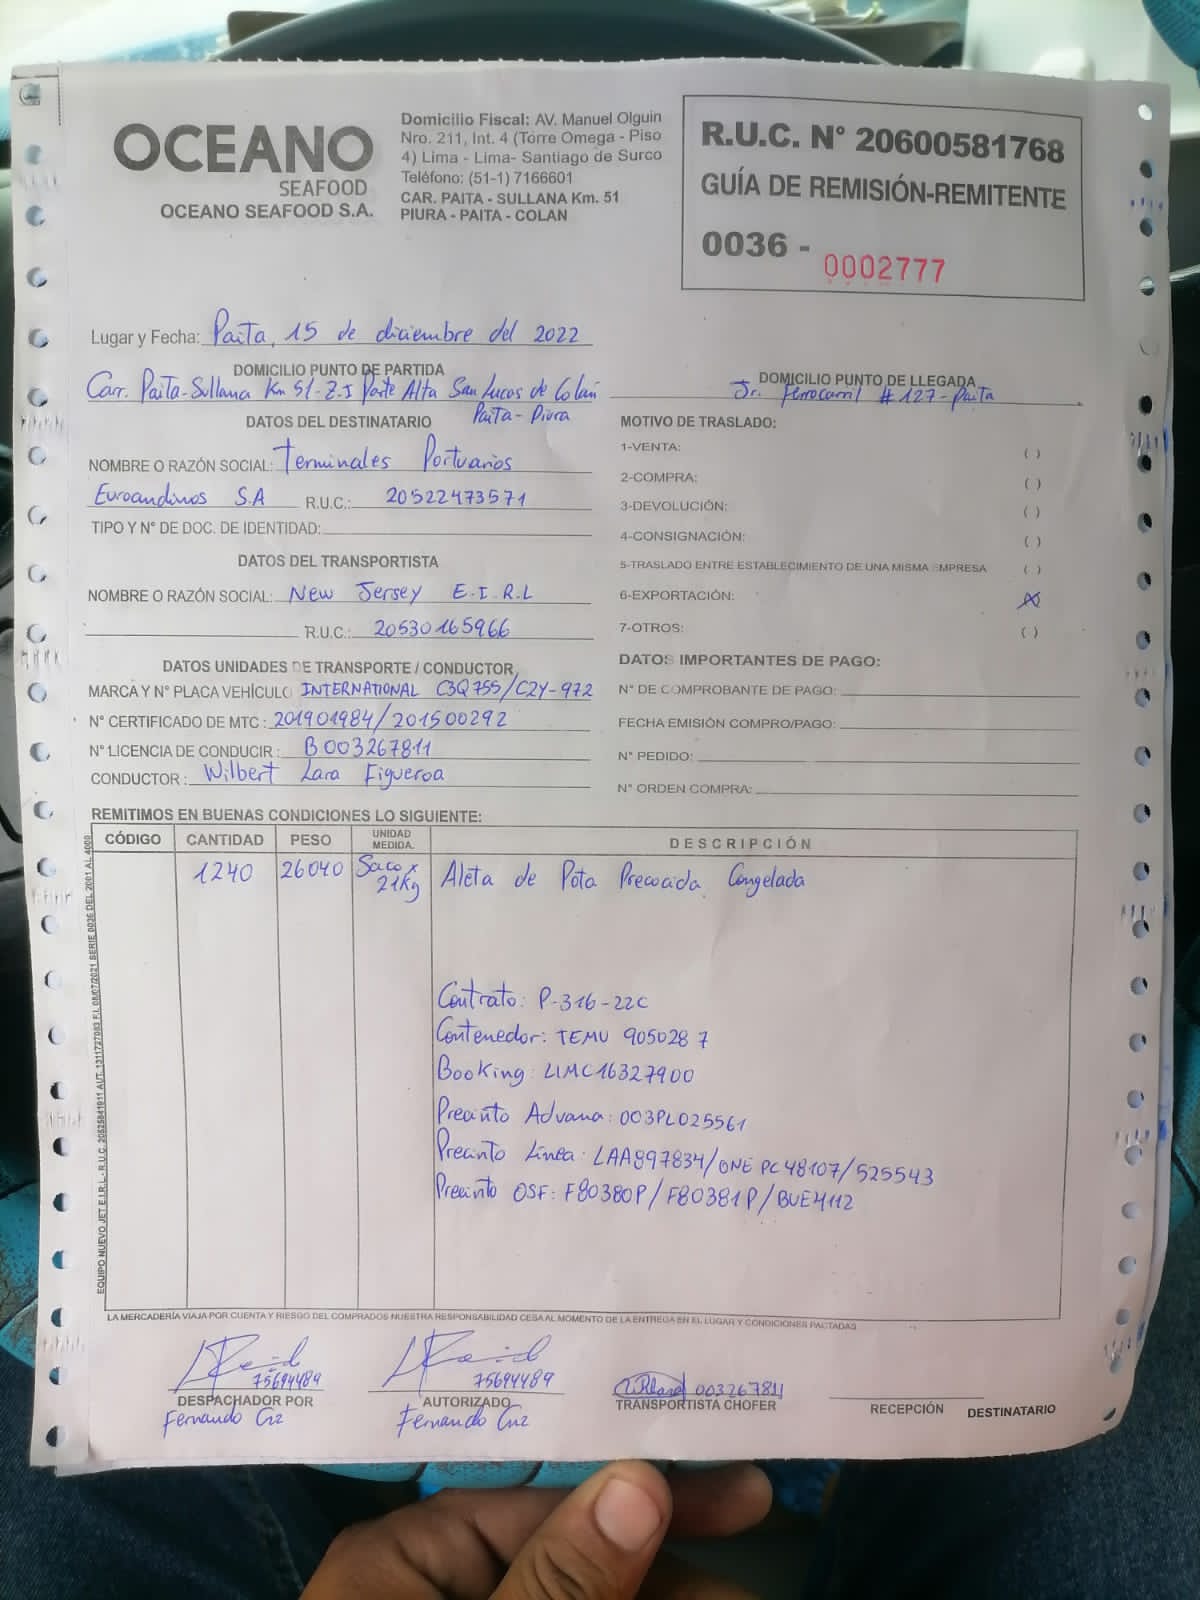 OCEANO
SEAFOOD
OCEANO SEAFOOD S.A.
Domicilio Fiscal: AV. Manuel Olguin
Nro. 211, Int. 4 (Torre Omega - Piso
4) Lima - Lima- Santiago de Surco
Teléfono: (51-1) 7166601
CAR. PAITA - SULLANA Km. 51
PIURA - PAITA - COLAN
R.U.C. N° 20600581768
GUÍA DE REMISIÓN-REMITENTE
0036 - 0002777
Lugar y Fecha: Paita, 15 de diciembre del 2022
DOMICILIO PUNTO DE PARTIDA
Carr. Paita-Sullana Km 51-Z.I Parte Alta San Lucas de Colán
Paita-Piura
DOMICILIO PUNTO DE LLEGADA
Jr. Ferrocarril #127-Paita
DATOS DEL DESTINATARIO
NOMBRE O RAZÓN SOCIAL: Terminales Portuarios
Euroandinos S.A R.U.C.: 20522473571
TIPO Y N° DE DOC. DE IDENTIDAD:
DATOS DEL TRANSPORTISTA
NOMBRE O RAZÓN SOCIAL: New Jersey E.I.R.L
R.U.C.: 20530165966
DATOS UNIDADES DE TRANSPORTE / CONDUCTOR
MARCA Y N° PLACA VEHÍCULO INTERNATIONAL C3Q755/C2Y-972
N° CERTIFICADO DE MTC: 201901984/201500292
N° LICENCIA DE CONDUCIR: B003267811
CONDUCTOR: Wilbert Lara Figueroa
MOTIVO DE TRASLADO:
1-VENTA: ( )
2-COMPRA: ( )
3-DEVOLUCIÓN: ( )
4-CONSIGNACIÓN: ( )
5-TRASLADO ENTRE ESTABLECIMIENTO DE UNA MISMA EMPRESA ( )
6-EXPORTACIÓN: (X)
7-OTROS: ( )
DATOS IMPORTANTES DE PAGO:
N° DE COMPROBANTE DE PAGO:
FECHA EMISIÓN COMPRO/PAGO:
N° PEDIDO:
N° ORDEN COMPRA:
REMITIMOS EN BUENAS CONDICIONES LO SIGUIENTE:
CÓDIGO CANTIDAD PESO UNIDAD MEDIDA. DESCRIPCIÓN
1240 26040 Saco x 21Kg Aleta de Pota Precocida Congelada
Contrato: P-316-22C
Contenedor: TEMU 905028 7
Booking: LIMC16327900
Precinto Aduana: 003PL025561
Precinto Línea: LAA897834/ONE PC48107/525543
Precinto OSF: F80380P/F80381P/BUE4112
EQUIPO NUEVO JET E.I.R.L - R.U.C. 20525841911 AUT. 1311727083 F.I. 08/07/2021 SERIE 0036 DEL 2001 AL 4000
LA MERCADERÍA VIAJA POR CUENTA Y RIESGO DEL COMPRADOS NUESTRA RESPONSABILIDAD CESA AL MOMENTO DE LA ENTREGA EN EL LUGAR Y CONDICIONES PACTADAS
75694489
DESPACHADOR POR
Fernando Cruz
75694489
AUTORIZADO
Fernando Cruz
003267811
TRANSPORTISTA CHOFER
RECEPCIÓN DESTINATARIO